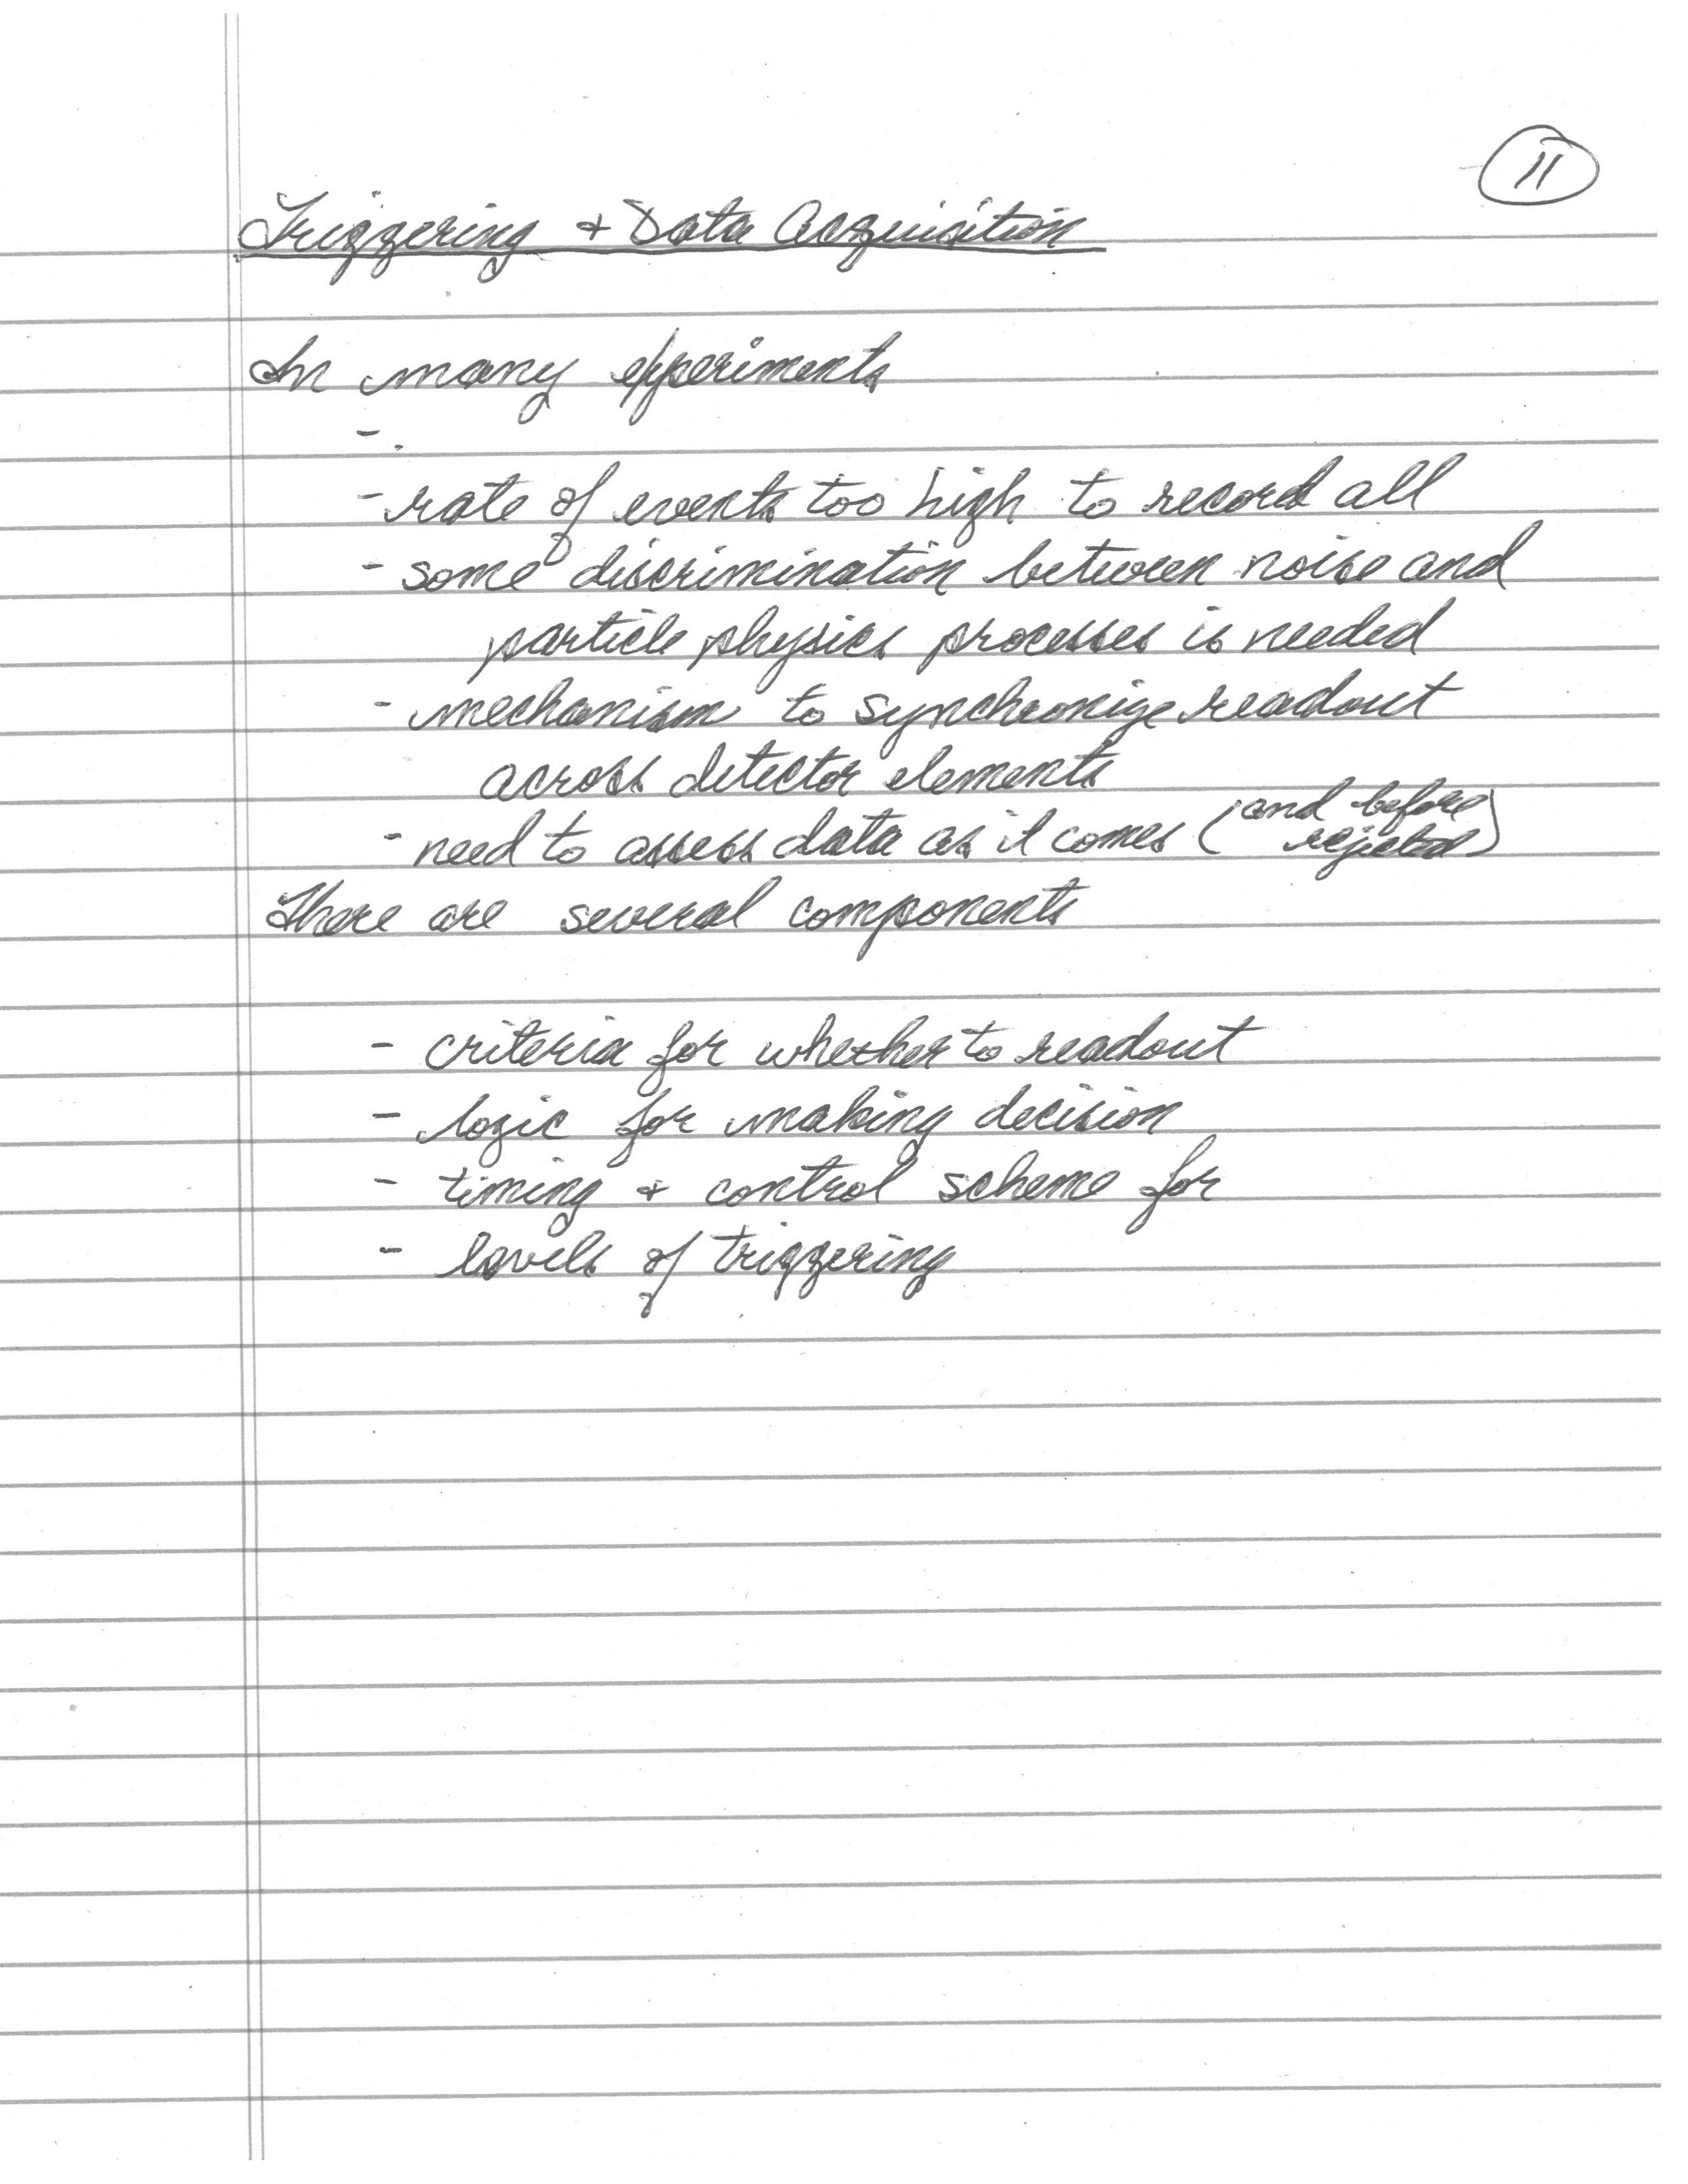 11
Triggering + Data Acquisition
In many experiments
-.
- rate of events too high to record all
- some discrimination between noise and
particle physics processes is needed
- mechanism to synchronize readout
across detector elements
- need to assess data as it comes (and before
rejected)
There are several components
- criteria for whether to readout
- logic for making decision
- timing + control scheme for
- levels of triggering